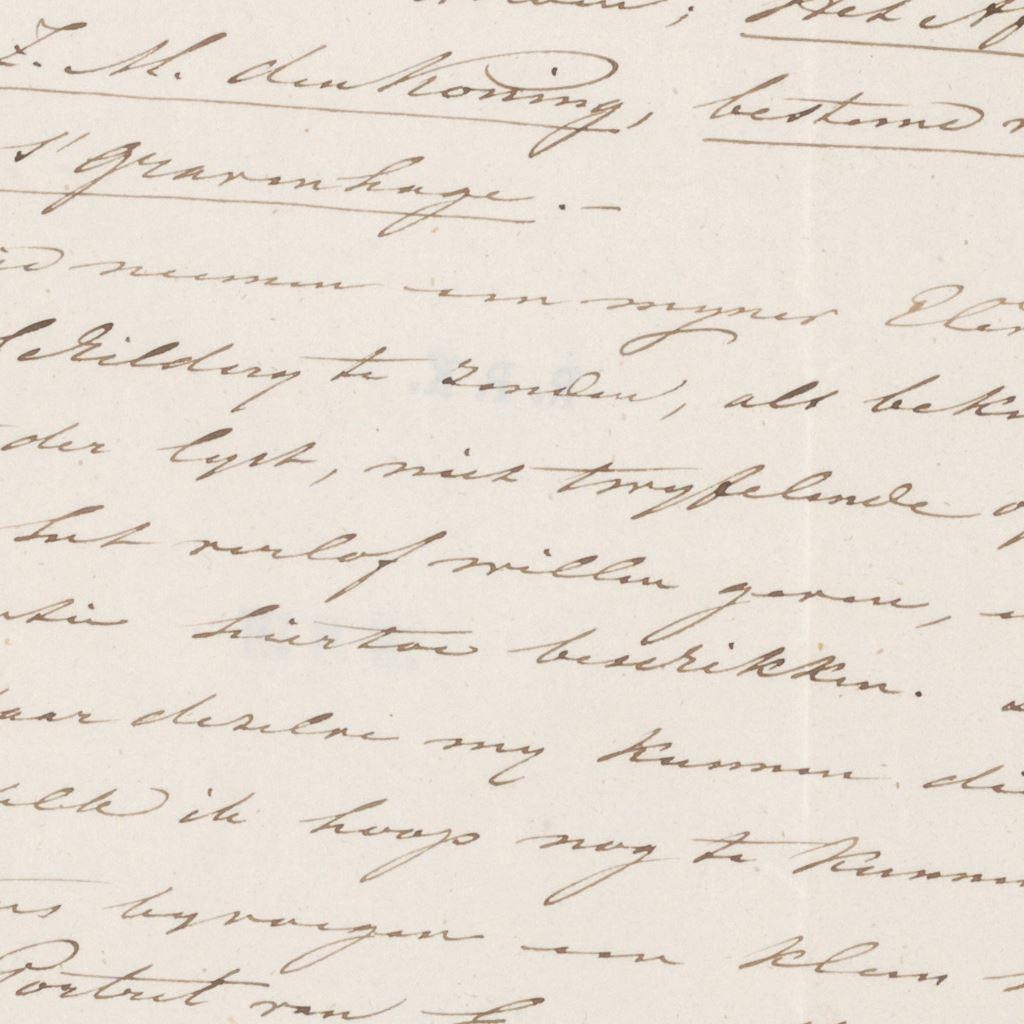 Het Af
Z. M. den Koning, bestemd
s' gravenhage. –
neemen een myner
Schildery te zenden, als bek
der lyst, niet twyfelende
het verlof willen geven,
hiertoe beschikken.
dezelve my kunnen di
ik hoop nog te kunnen
byvoegen een klein
Portret van